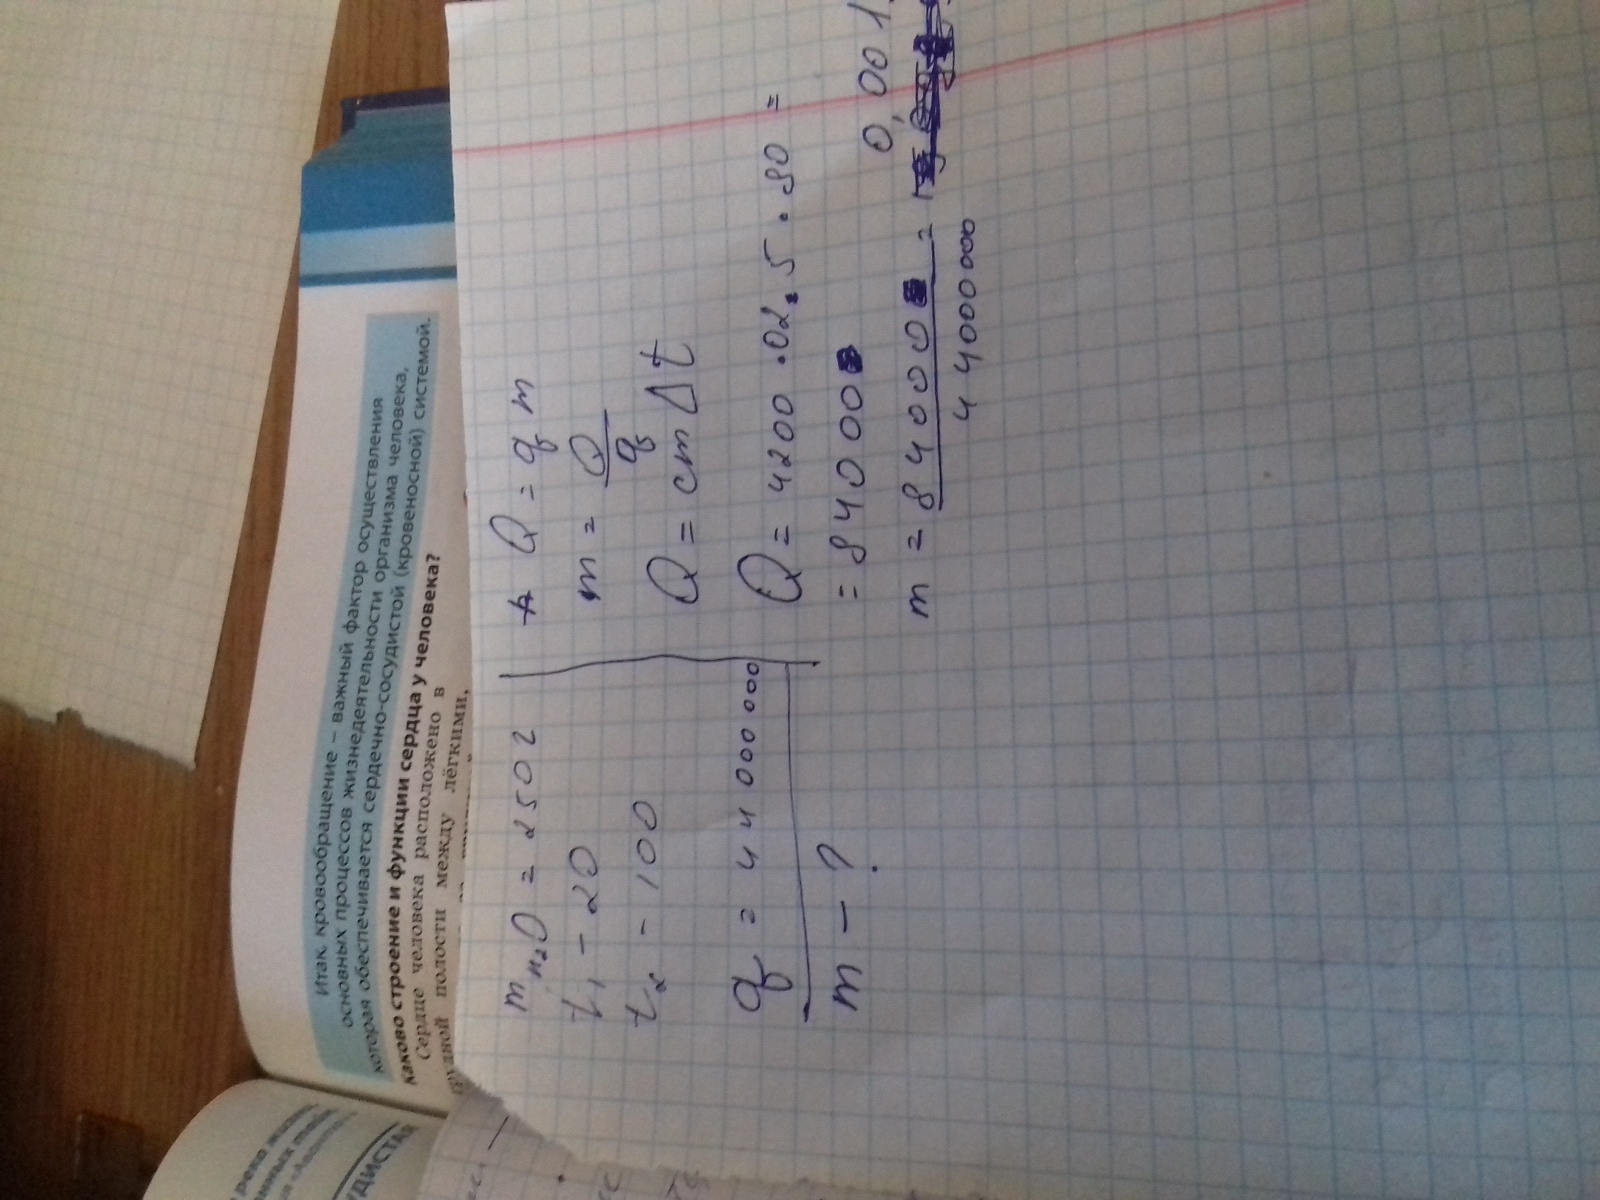 Итак, кровообращение – важный фактор осуществления
основных процессов жизнедеятельности организма человека,
которая обеспечивается сердечно-сосудистой (кровеносной) системой.
каково строение и функции сердца у человека?
Сердце человека расположено в
грудной полости между лёгкими,
m H2O = 250г
t1 - 20
t2 - 100
q = 44 000 000
m - ?
Q = q m
m = Q
q
Q = cm Δt
Q = 4200 . 02,5 . 80 =
= 84000
m = 84000 =
44000000
0,001